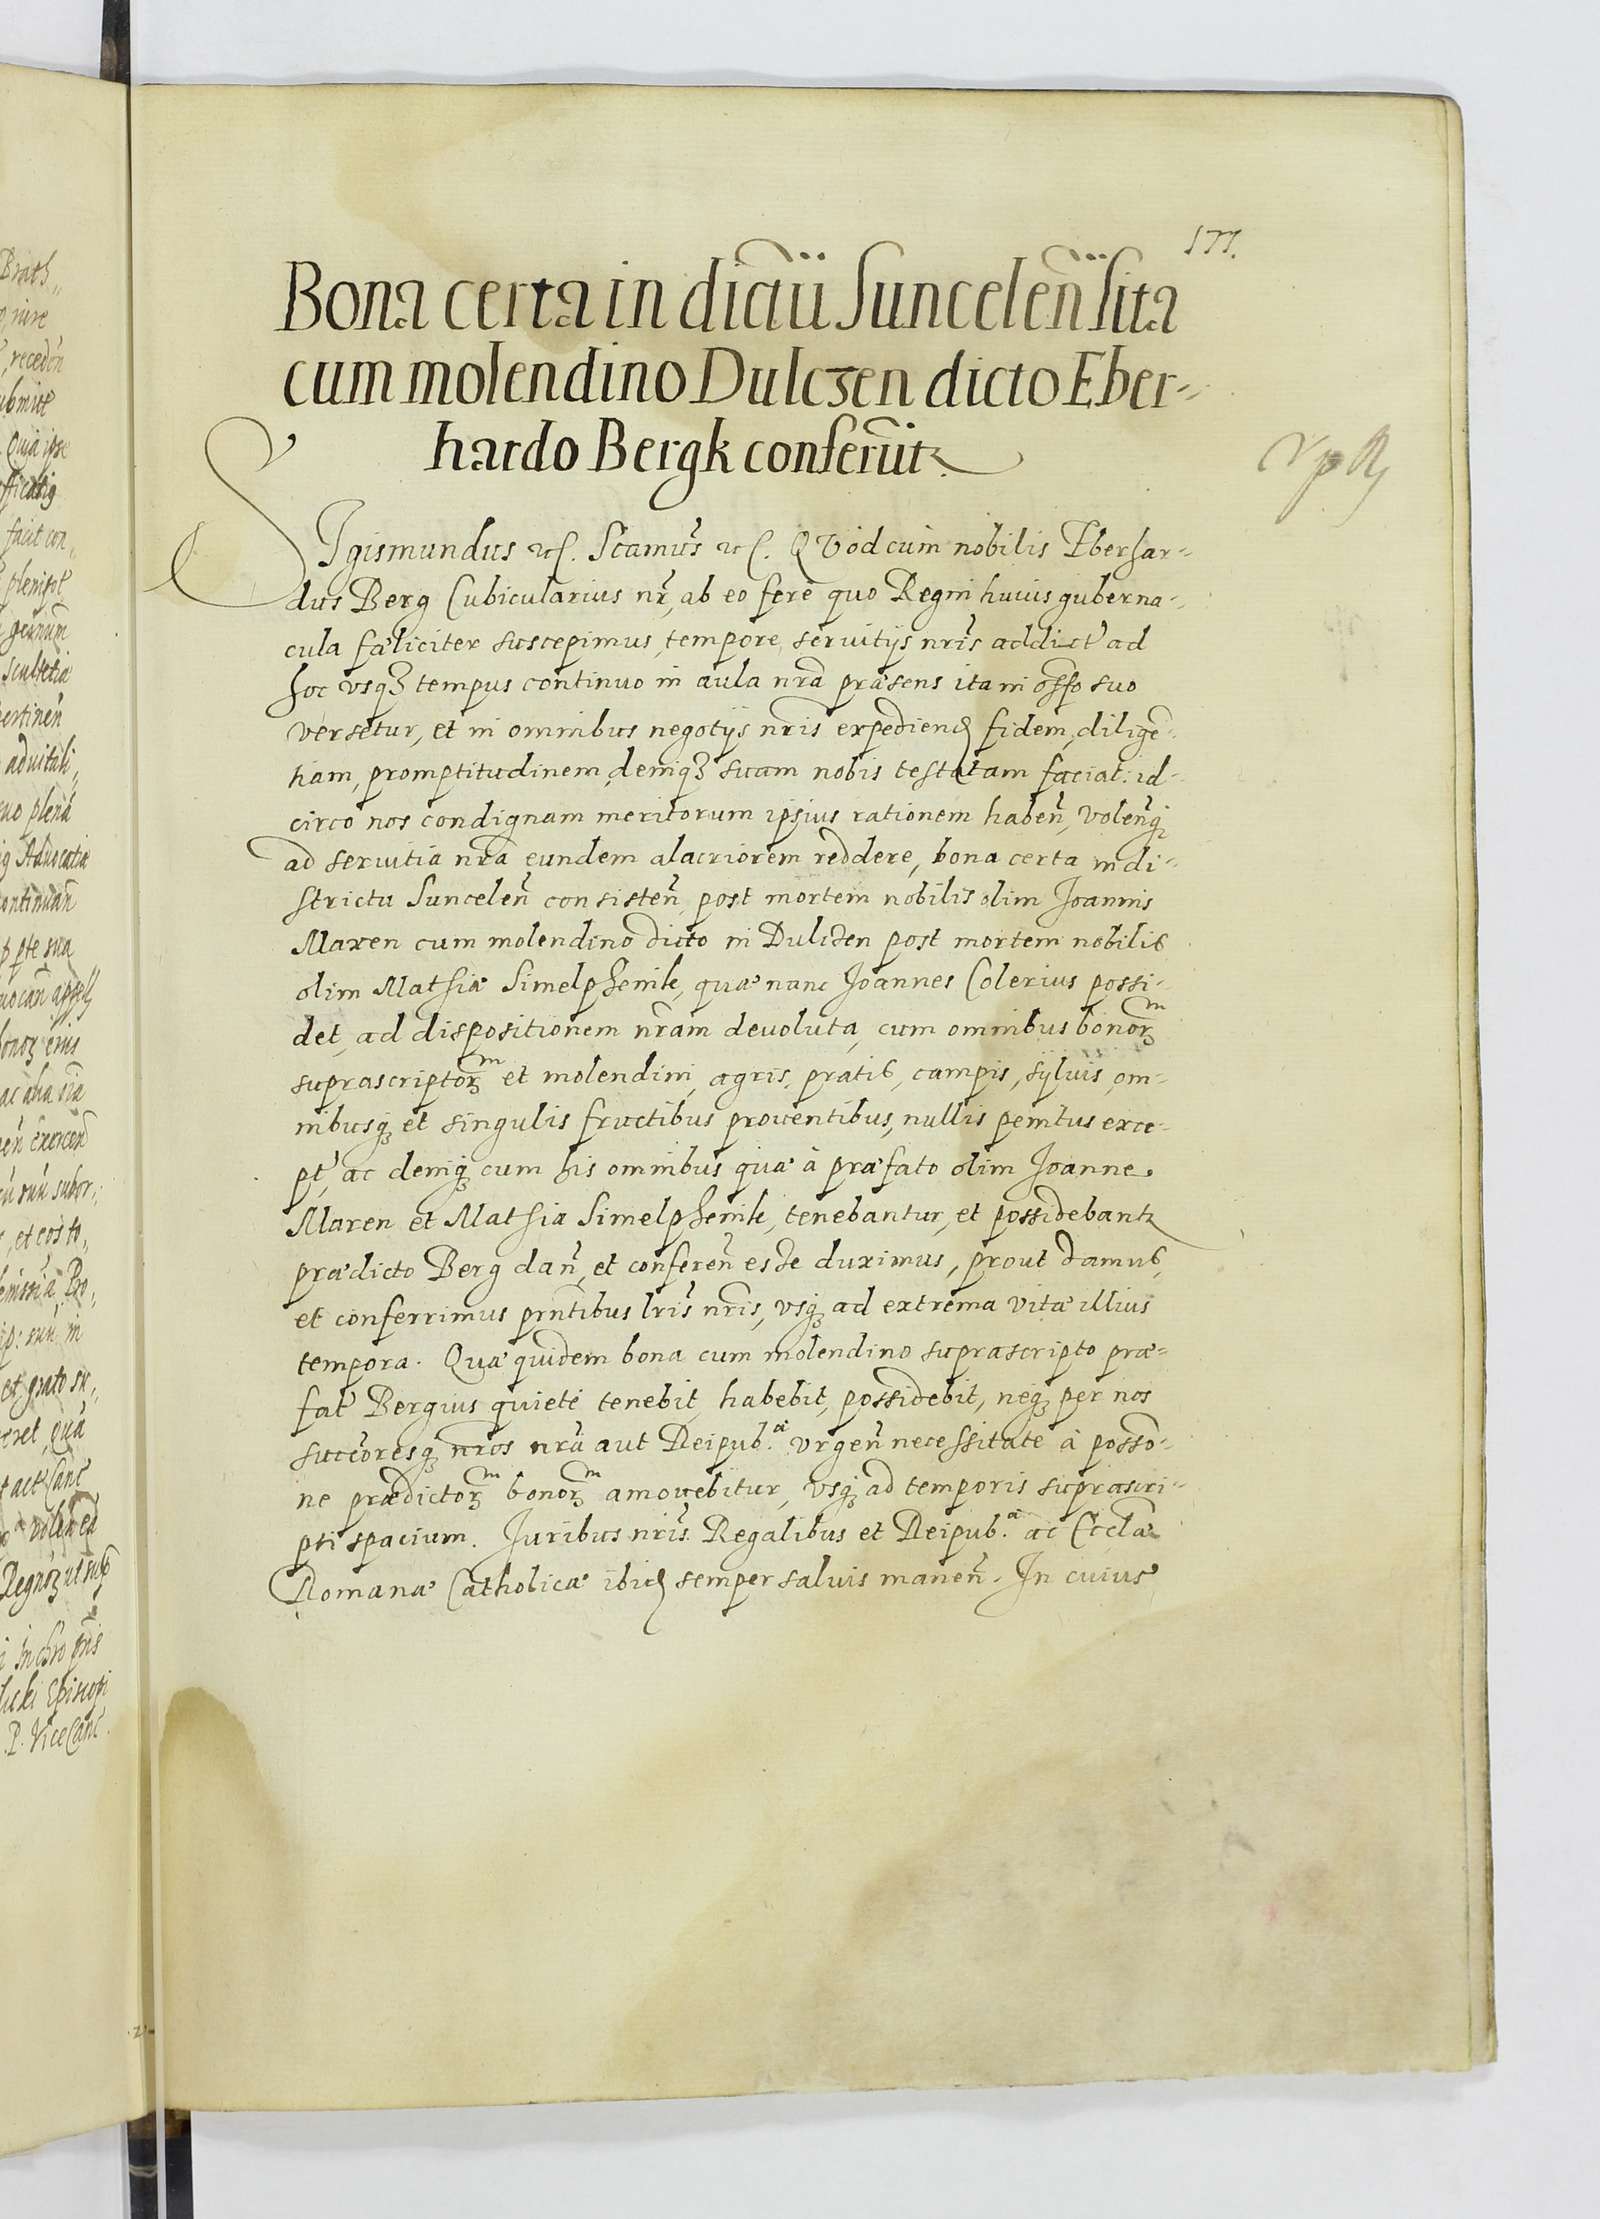 177.
Bona certa in dictu Suncelen̄ sita
cum molendino Dulczen dicto Eber-
hardo Bergk conferūt
SIgismundus etc. Scamus etc. QVod cum nobilis Eberhar-
dus Berg Cubicularius nr̄, ab eo fere quo Regni huius guberna-
cula fæliciter suscepimus, tempore, seruitijs nr̄is addict' ad
hoc vsq₃ tempus continuo in aula nr̄a præsens ita in offo suo
versetur, et in omnibus negotijs nr̄is expediend fidem, diligē-
tiam, promptitudinem, deniq₃ suam nobis testatam faciat: id-
circo nos condignam meritorum ipsius rationem haben̄, volen̄q₃
ad seruitia nr̄a eundem alacriorem reddere, bona certa in di-
strictu Suncelen̄ consisten̄, post mortem nobilis olim Joannis
Maxen cum molendino dicto in Dulczen post mortem nobilis
olim Mathiæ Simelphenik, quæ nunc Joannes Colerius possi-
det, ad dispositionem nr̄am deuoluta, cum omnibus bonorᵐ
suprascriptorᵐ et molendini, agris, pratis, campis, syluis, om-
nibusq₃ et singulis fructibus prouentibus, nullis penitus exce-
pt', ac deniq₃ cum his omnibus quæ à præfato olim Joanne
Maxen et Mathia Simelphenik, tenebantur, et possidebant
prædicto Berg dan̄, et conferen̄ esse duximus, prout damus,
et conferrimus prn̄tibus lr̄is nr̄is, vsq₃ ad extrema vitæ illius
tempora. Quæ quidem bona cum molendino suprascripto præ-
fat' Bergius quietè tenebit, habebit, possidebit, neq₃ per nos
succ̄oresq₃ nr̄os nr̄a aut Reipub.æ vrgen̄ necessitate à posso-
ne prædictorᵐ bonorᵐ amouebitur, vsq₃ ad temporis suprascri-
pti spacium. Juribus nr̄is Regalibus et Reipub.æ ac Eccl̄æ
Romanæ Catholicæ ibid semper saluis manen̄. In cuius